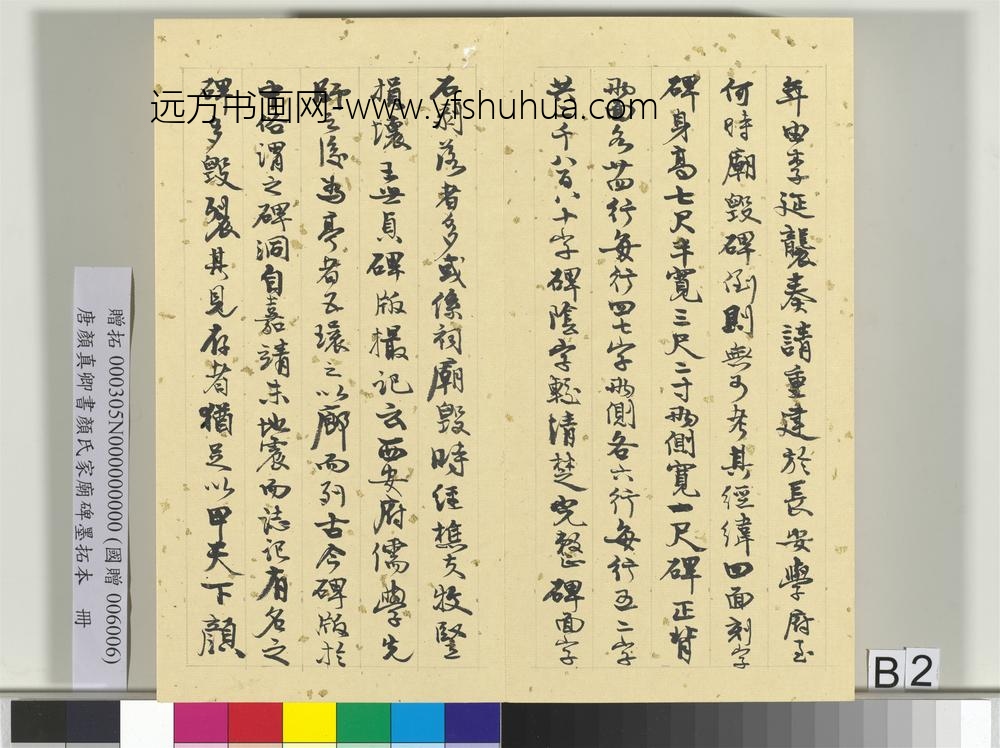 年由李延襲奏請重建於長安學府至
何時廟毀碑倒則無可考其經緯四面刻字
碑身高七尺半寬三尺二寸兩側寬一尺碑正背
兩面各廿四行每行四七字兩側各六行每行五二字
共千八百八十字碑陰字較清楚完整碑面字
右剝落者多或係祠廟毀時經樵夫牧豎
損壞王世貞碑版撮記云西安府儒學先
後為亭者五環之以廊而列古今碑版於
俗謂之碑洞自嘉靖末地震而誌記有名之
碑多毀裂其見存者猶足以甲天下顏
远方书画网-www.yfshuhua.com
贈拓 000305N000000000 (國贈 006006)
唐顏真卿書顏氏家廟碑墨拓本 冊
B 2